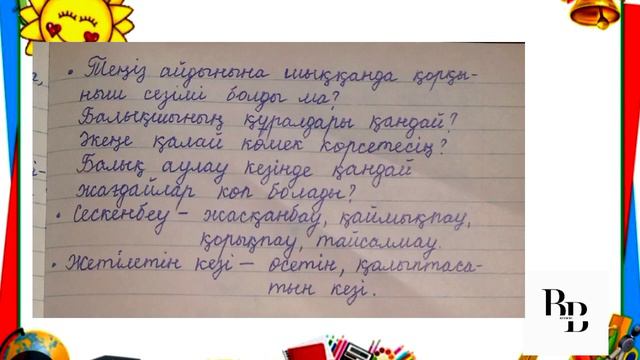 • Теңіз айдынына шыққанда қорқы-
ныш сезімі болды ма?
Балықшының құралдары қандай?
Әкеңе қалай көмек көрсетесің?
Балық аулау кезінде қандай
жағдайлар көп болады?
• Сескенбеу – жасқанбау, қаймықпау,
қорықпау, тайсалмау.
• Жетілетін кезі – өсетін, қалыптаса-
тын кезі.